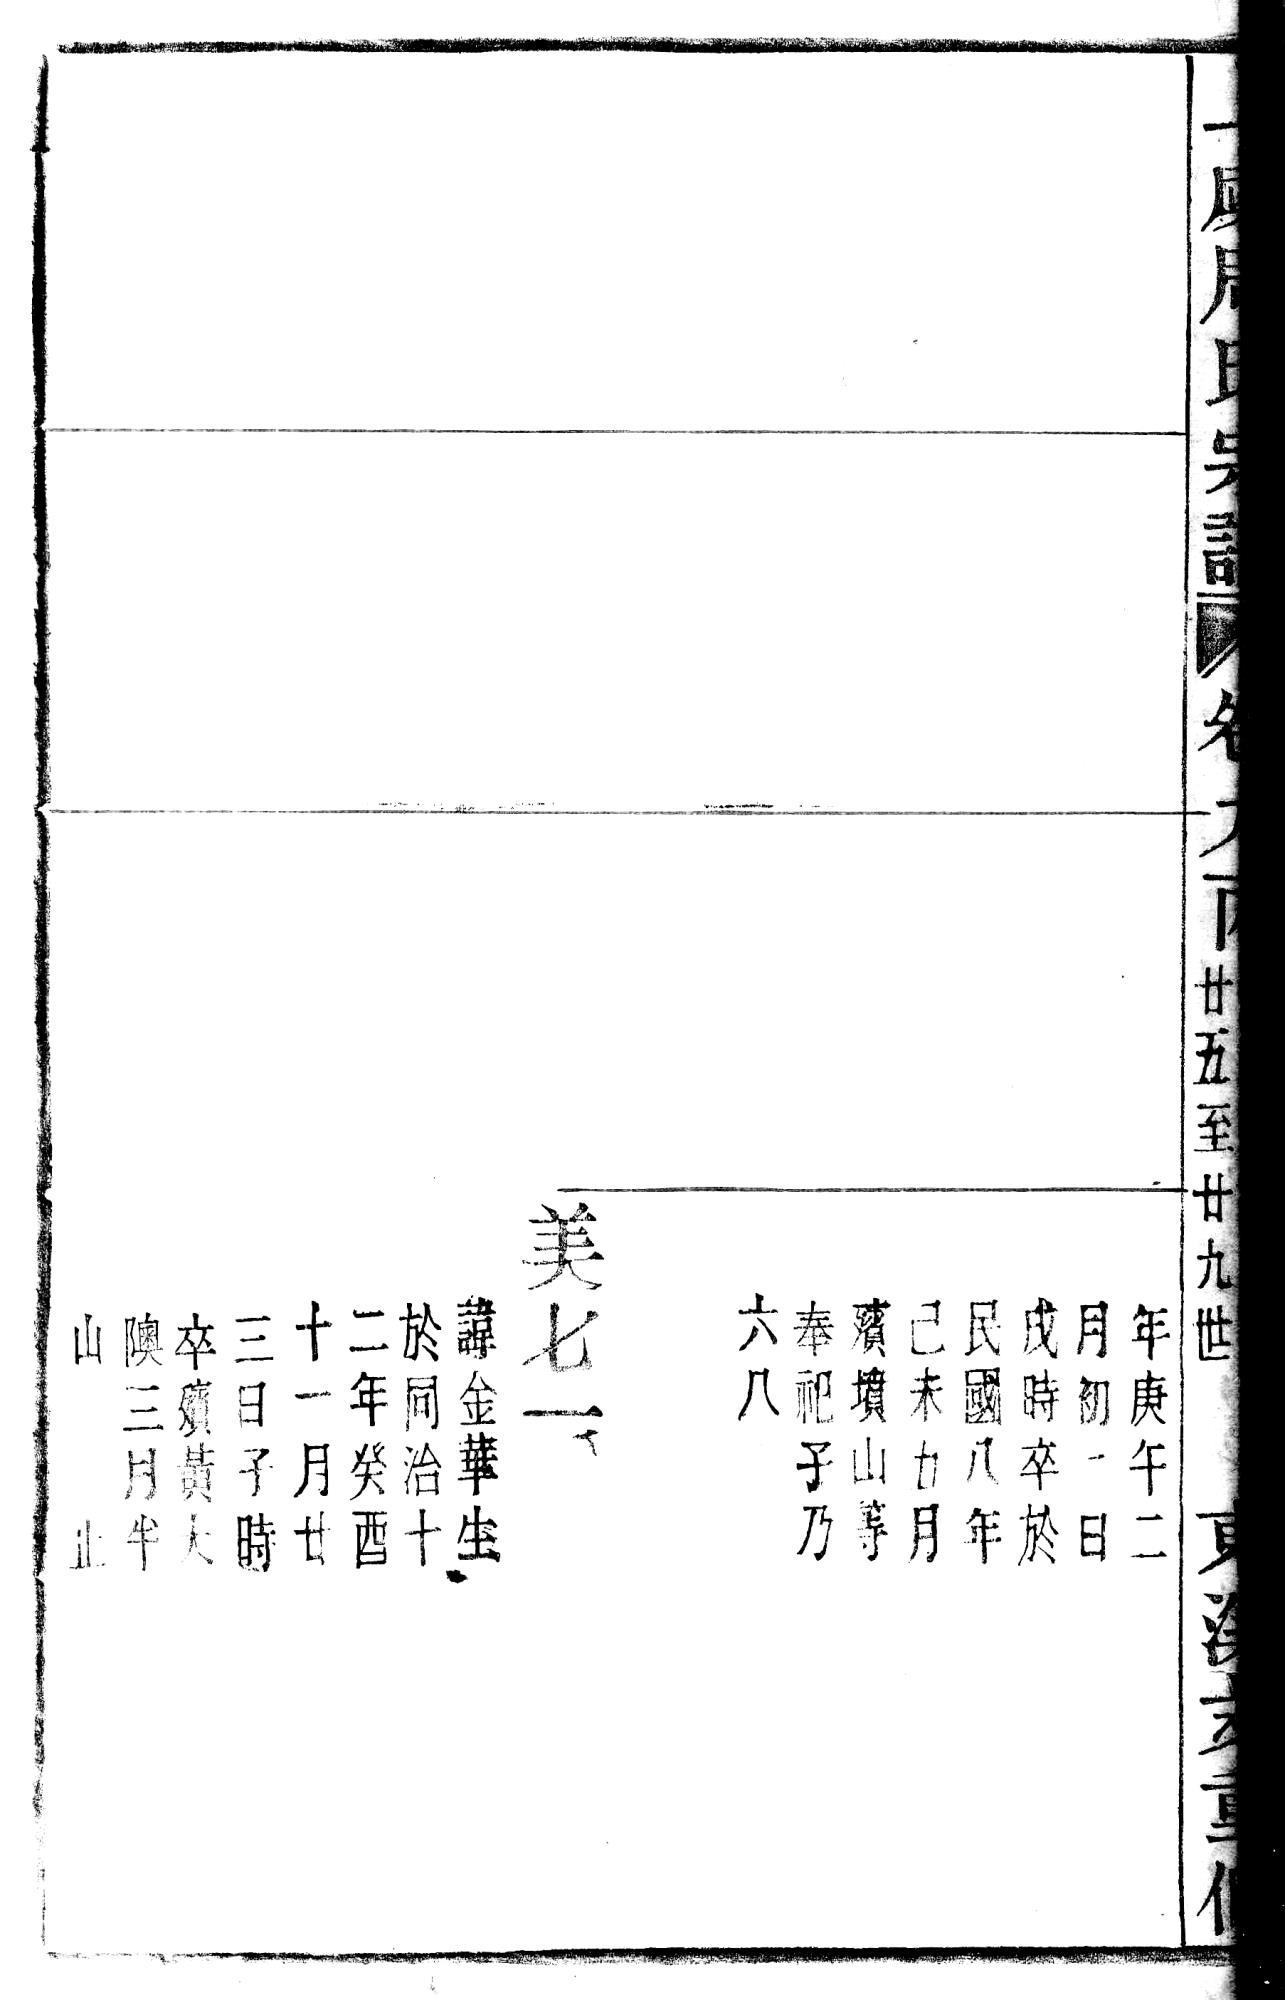 周氏宗譜 卷 廿五至廿九世 東 重修
年庚午二
月初一日
戌時卒於
民國八年
己未七月
殯墳山等
奉祀子乃
六八
美七一
諱金華生
於同治十
二年癸酉
十一月廿
三日子時
卒殯黃大
隩三月半
山 止